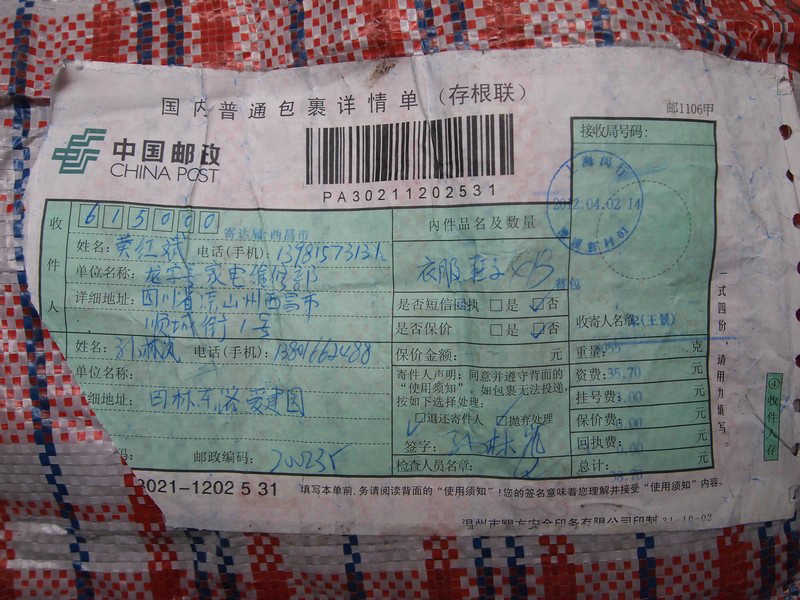 国内普通包裹详情单（存根联）
邮1106甲
中国邮政
CHINA POST
PA30211202531
接收局号码：
2012.04.02 14
收件人
615000
寄达城:西昌市
姓名：黄红斌 电话(手机)：
单位名称：家电维修部
详细地址：四川省凉山州西昌市
顺城街1号
内件品名及数量
衣服 鞋子
是否短信回执 □是 ☑否
是否保价 □是 ☑否
保价金额： 元
收寄人员名章:(王景)
姓名： 电话(手机)：13801662488
单位名称：
细地址：田林东路爱建园
邮政编码：200235
寄件人声明：同意并遵守背面的
“使用须知”。如包裹无法投递，
按如下选择处理：
□退还寄件人 ☑抛弃处理
签字：
检查人员名章：
重量： 克
资费：35.70 元
挂号费： 元
保价费： 元
回执费： 元
总计： 元
一式四份，请用力填写。
④收件人存
3021-1202 5 31
填写本单前，务请阅读背面的“使用须知”！您的签名意味着您理解并接受“使用须知”内容。